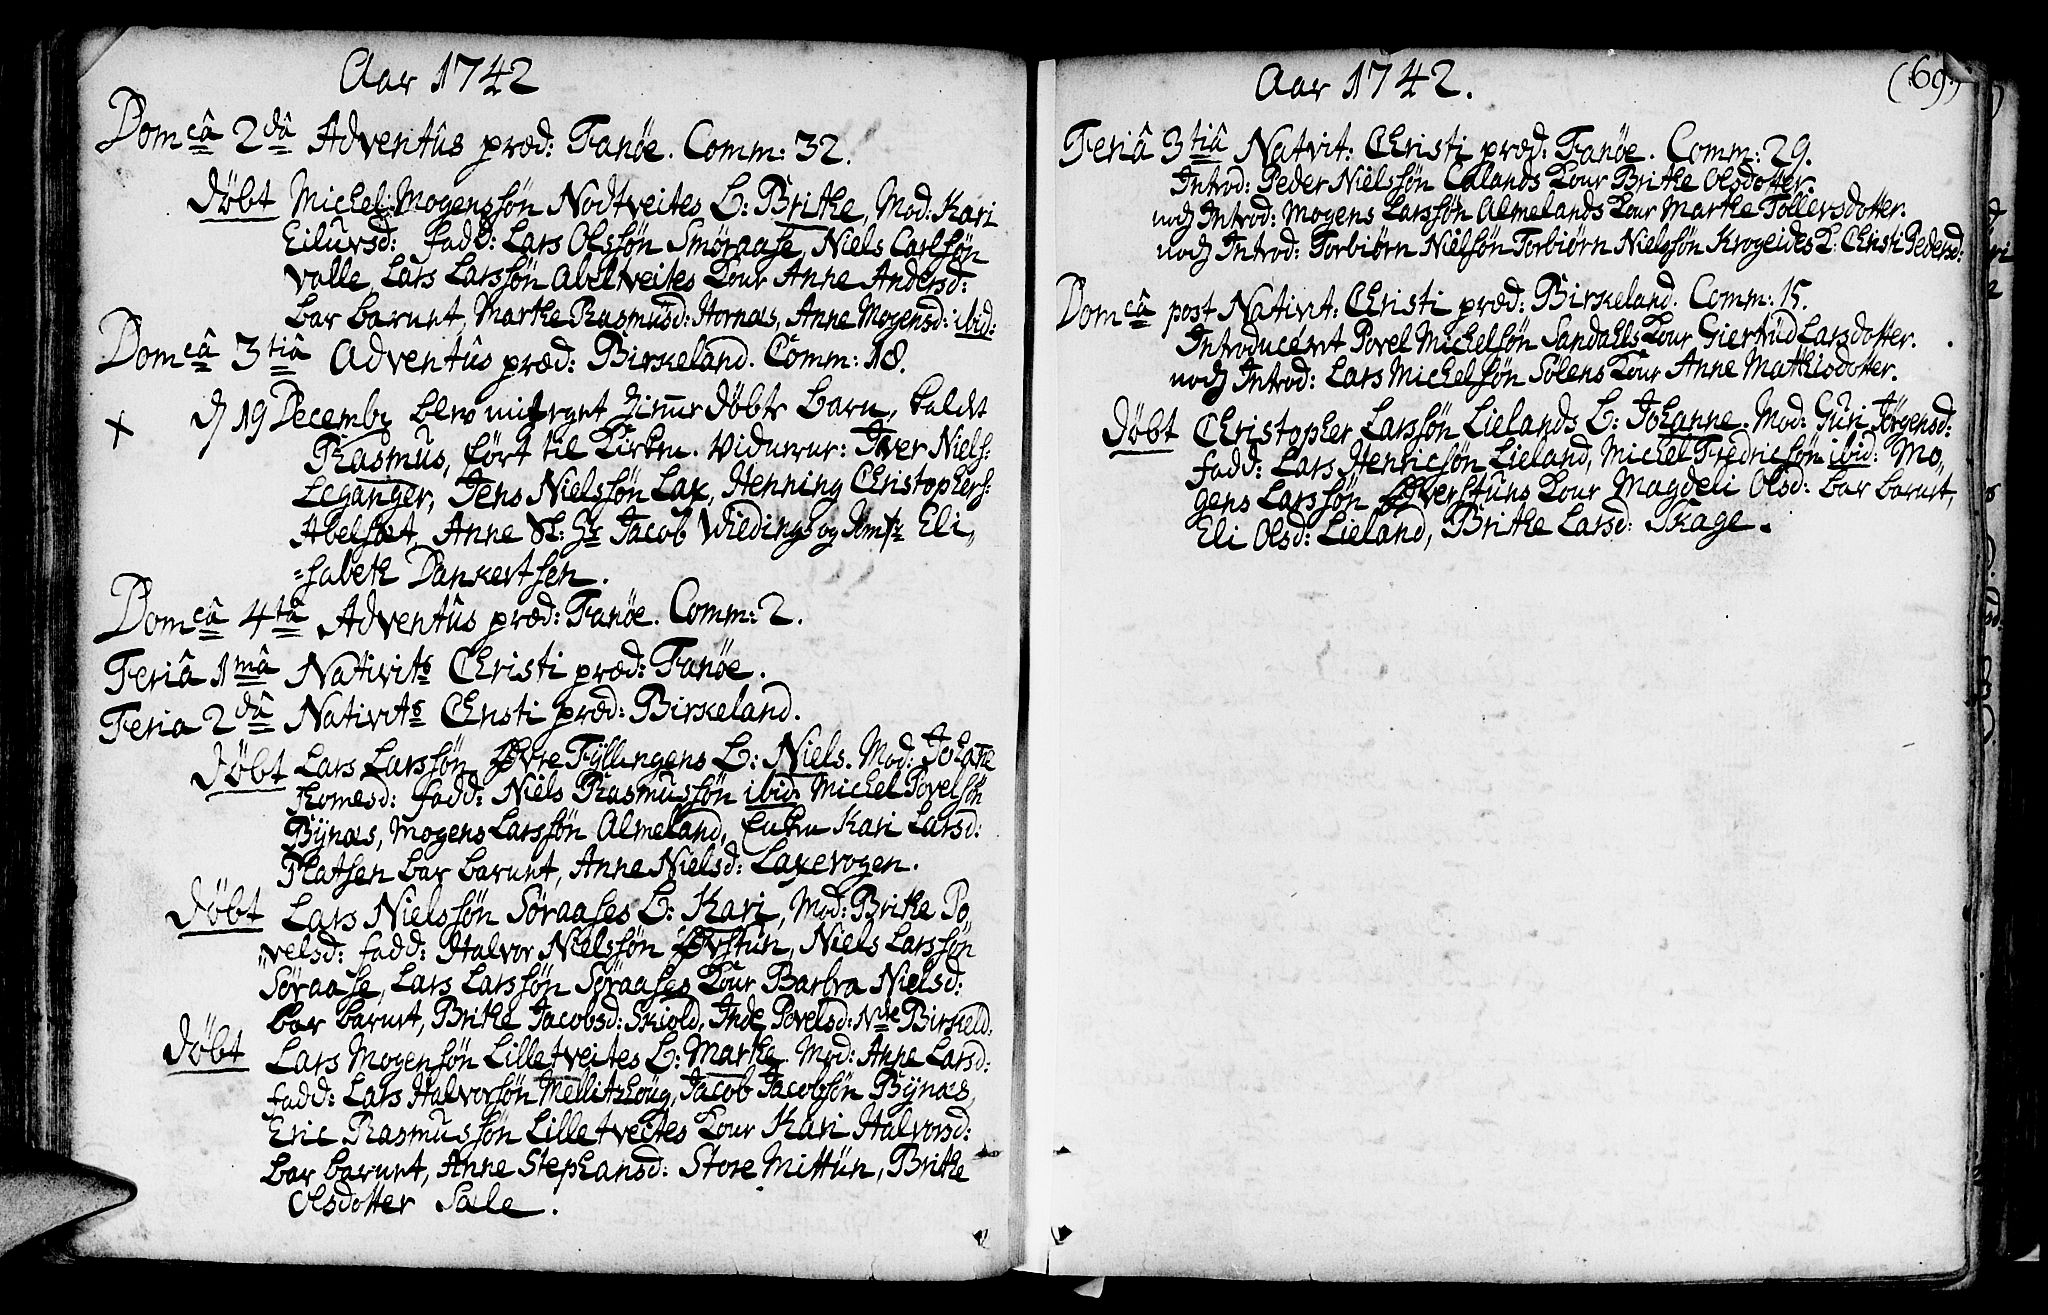 Aar 1742
Domcâ 2dâ Adventûs præd: Fanøe. Comm: 32.
Døbt Michel Mogenssøn Nodtveites b: Brithe, Mod: Kari
Eiluvsd: fadd: Lars Olssøn Smøraase, Niels Carlssøn
Valle, Lars Larssøn Abeltveites Kone Anne Andersd:
bar barnet, Marthe Rasmusd: Hornæs, Anne Mogensd: ibid:
Domcâ 3tiâ Adventûs præd: Birkeland. Comm: 18.
+ d 19 Decembr blev et hiemme døbt barn, kaldt
Rasmus, ført til Kirken. Vidnerne: Iver Niels:
Leganger, Jens Nielssøn Lax, Henning Christophers:
Abelsæt, Anne Sl: Hr Jacob Wiedings og Jomfr Eli„
=sabeth Dankertsen.
Domcâ 4tâ Adventûs præd: Fanøe. Comm: 2.
Feriâ 1mâ Nativits Christi præd: Fanøe.
Feria 2dâ Nativits Christi præd: Birkeland.
Døbt Lars Larssøn Øvre Fyllingens b: Niels. Mod: Johane
Thomesd: fadd: Niels Rasmussøn ibid: Michel Povelsøn
Bynæs, Mogens Larssøn Almeland, Enken Kari Larsd:
Platsen bar barnet, Anne Nielsd: Laxevogen.
Døbt Lars Nielssøn Søraases b: Kari, Mod: Brithe Po
„velsd: fadd: Halvor Nielssøn Øvstun, Niels Larssøn
Søraase, Lars Larssøn Søraases Kone Barbra Nielsd:
bar barnet, Brithe Jacobsd: Skiold, Inde Povelsd: Ndre Birkeld.
Døbt Lars Mogensøn Lilletveites b: Marthe. Mod: Anne Larsd:
fadd: Lars Halvorsøn Mellitzhoug, Jacob Jacobsøn Bynæs,
Eric Rasmussøn Lilletveites Kone Kari Halvorsd:
bar barnet, Anne Stephansd: Store Mittun, Brithe
Olsdotter Sæle.
Aar 1742. (69.)
Feriâ 3tiâ Natvit: Christi præd: Fanøe. Comm: 29.
Introd: Peder Nielssøn Kone Brithe Olsdotter.
nok Introd: Mogens Larssøn Almelands Kone Marthe Tollevsdotter.
nok Introd: Torbiørn Nielsøn Torbiørn Nielssøn Krogeides K: Christi Pedersd:
Domcâ post Nativit: Christi præd: Birkeland. Comm: 15.
Introduceret Povel Michelsøn Sandahls Kone Giertrud Larsdotter.
nok Introd: Lars Michelssøn Solens Kone Anne Mathisdotter.
Døbt Christopher Larssøn Lielands b: Johanne. Mod: Guri Jørgensd:
fadd: Lars Henricsøn Lieland, Michel Fredricsøn ibid: Mo„
gens Larssøn Øverstuns Kone Magdeli Olsd: bar barnet,
Eli Olsd: Lieland, Brithe Larsd: Skage.